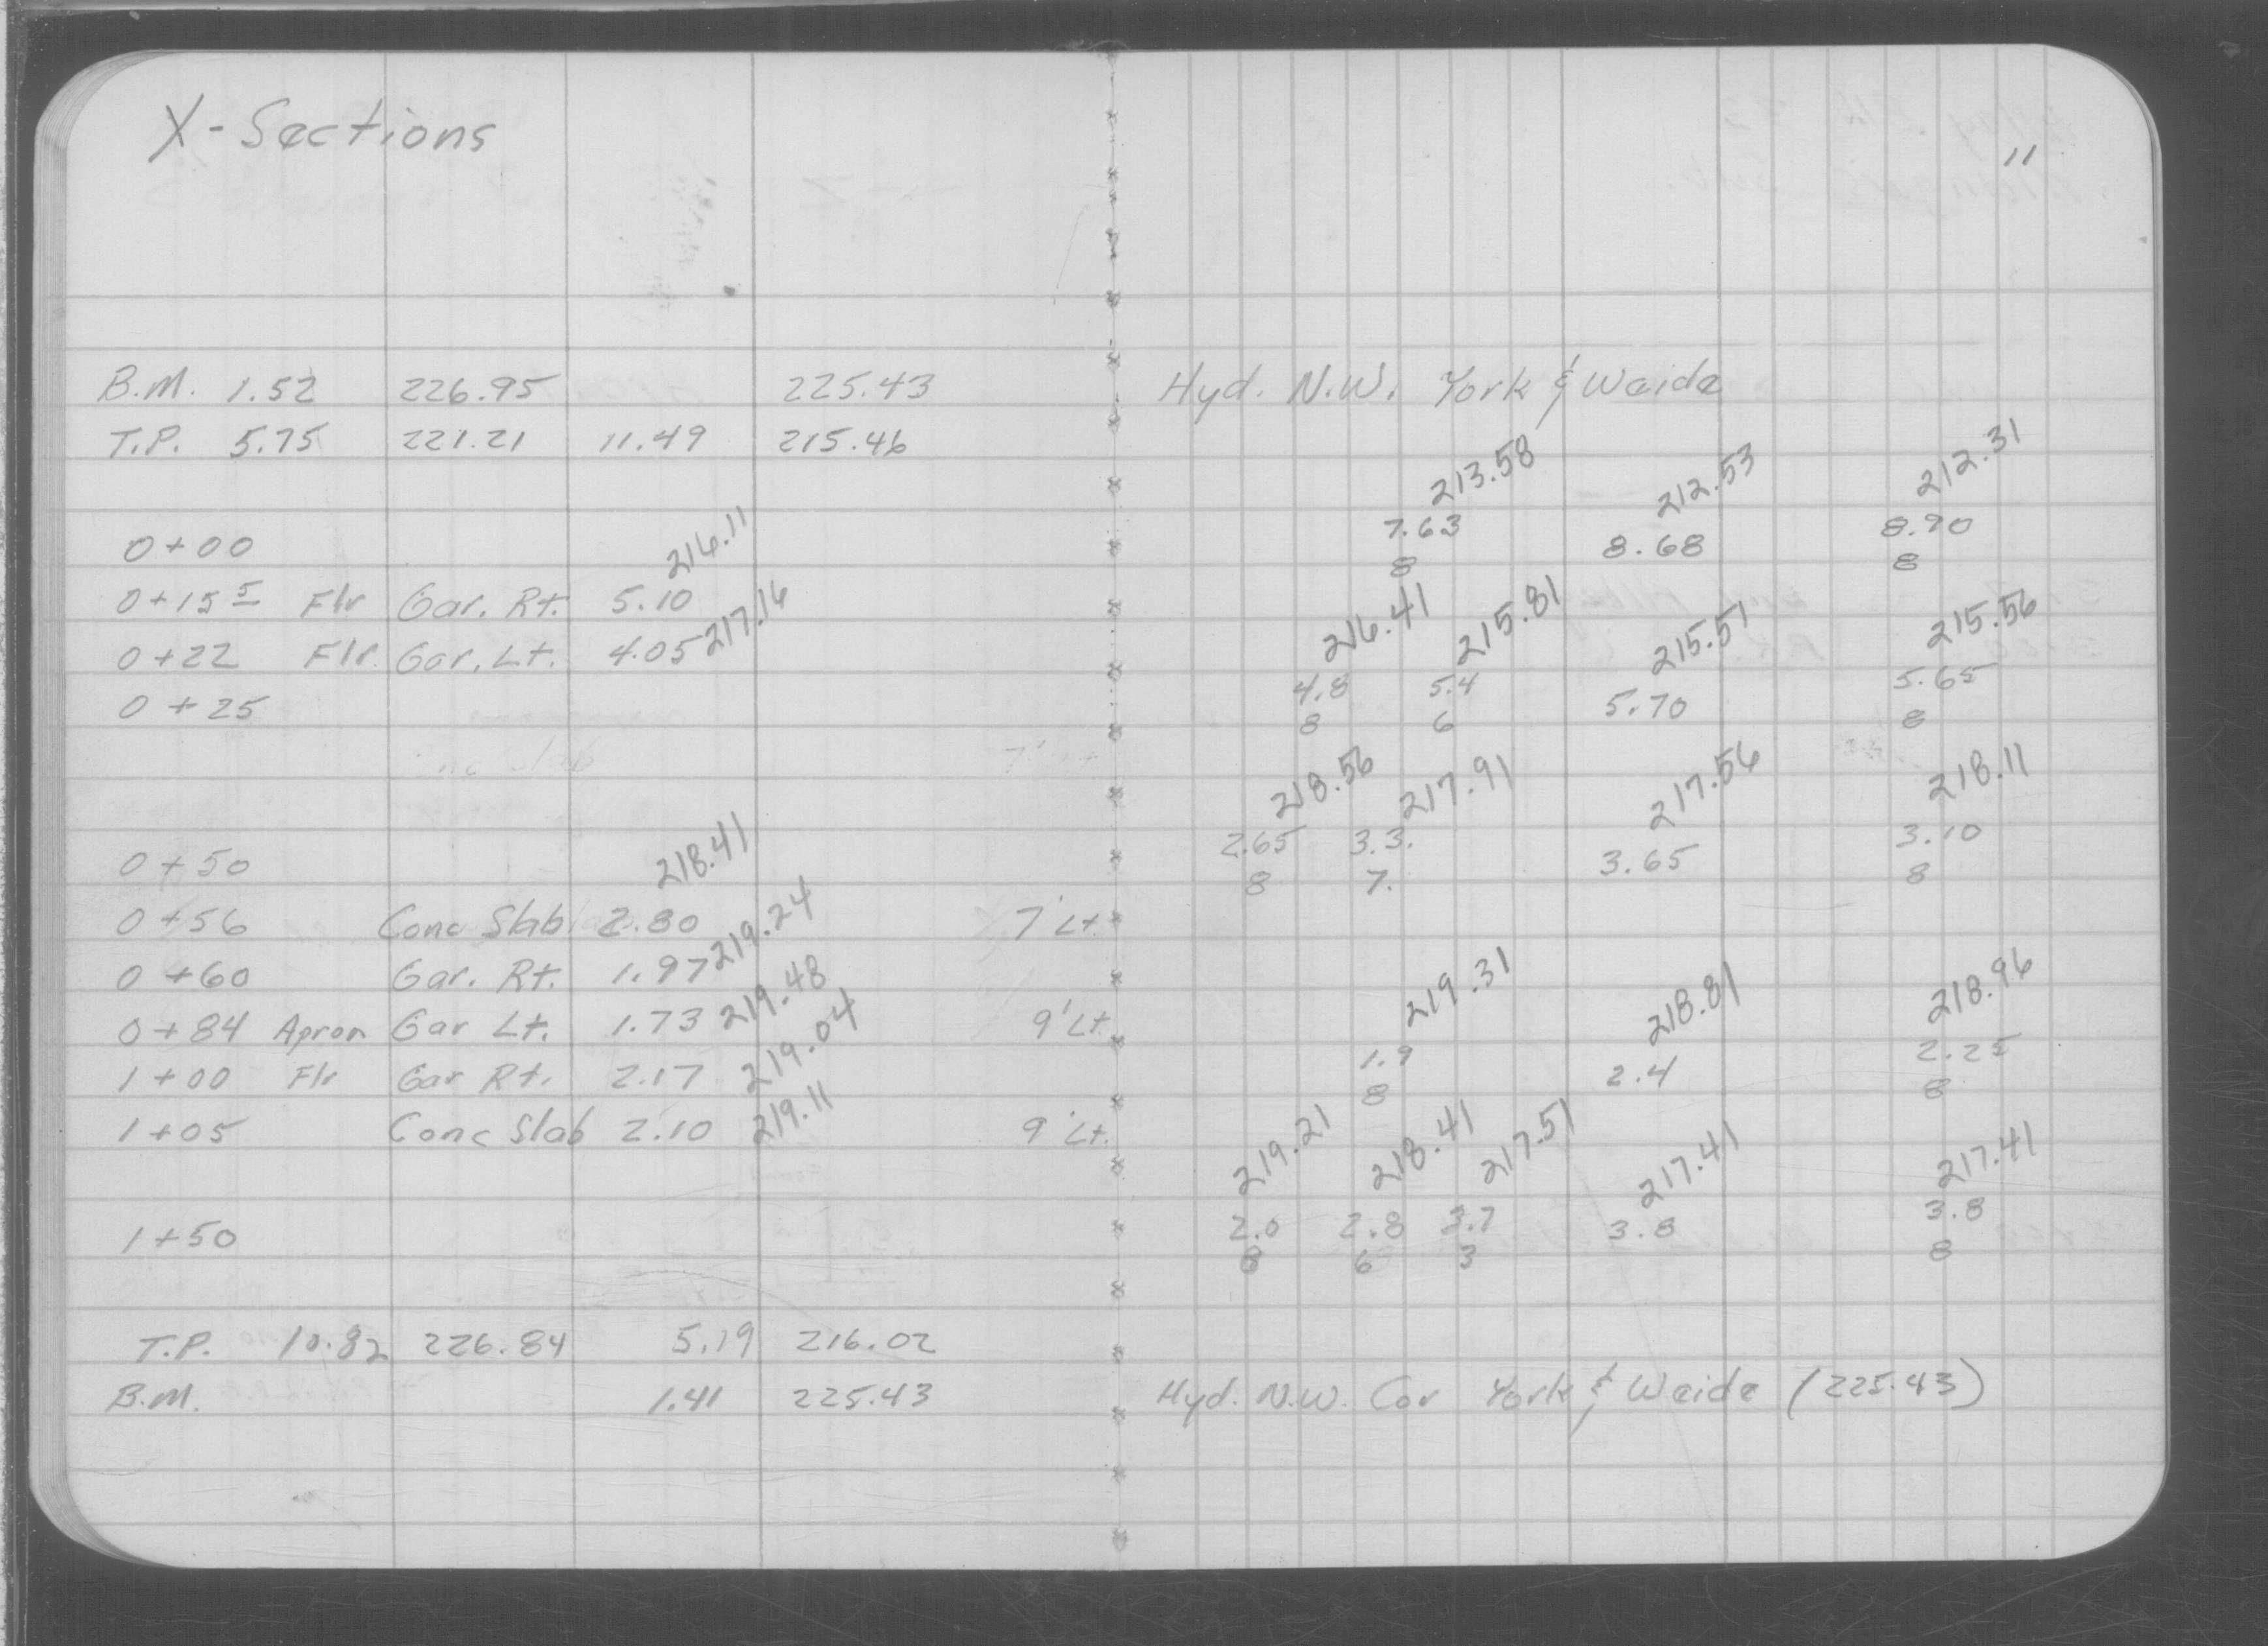 X-Sections
11
B.M. 1.52 226.95 225.43 Hyd. N.W. York & Weide
T.P. 5.75 221.21 11.49 215.46
213.58 212.53 212.31
216.11 7.63 8.90
0+00 8.68
8 8
0+15 5 Flr Gar. Rt. 5.10
217.16 216.41 215.81 215.51 215.56
0+22 Flr. Gar. Lt. 4.05
4.8 5.4 5.65
0+25 5.70
8 6 8
218.56 217.91 217.56 218.11
2.65 3.3. 3.10
0+50 218.41 3.65
8 7. 8
0+56 Conc Slab 2.80 7' Lt.
219.24
0+60 Gar. Rt. 1.97
219.48 219.31 218.81 218.96
0+84 Apron Gar Lt. 1.73 9' Lt.
219.04 1.9 2.25
1+00 Flr Gar Rt. 2.17 2.4
8 8
219.11
1+05 Conc Slab 2.10 9' Lt.
219.21 218.41 217.51 217.41 217.41
2.0 2.8 3.7 3.8
1+50 3.8
8 6 3 8
T.P. 10.82 226.84 5.19 216.02
B.M. 1.41 225.43 Hyd. N.W. Cor York & Weide (225.43)